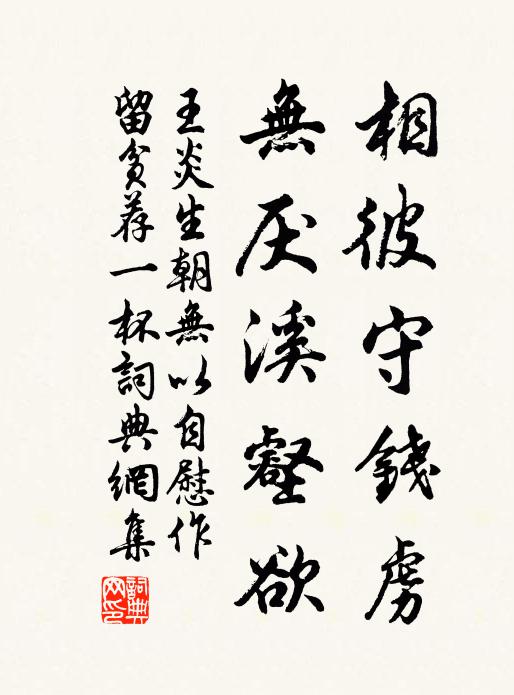 相彼守錢虜
無厌溪壑欲
王炎生朝無以自慰作
留貧荐一杯詞典網集
詞典網印